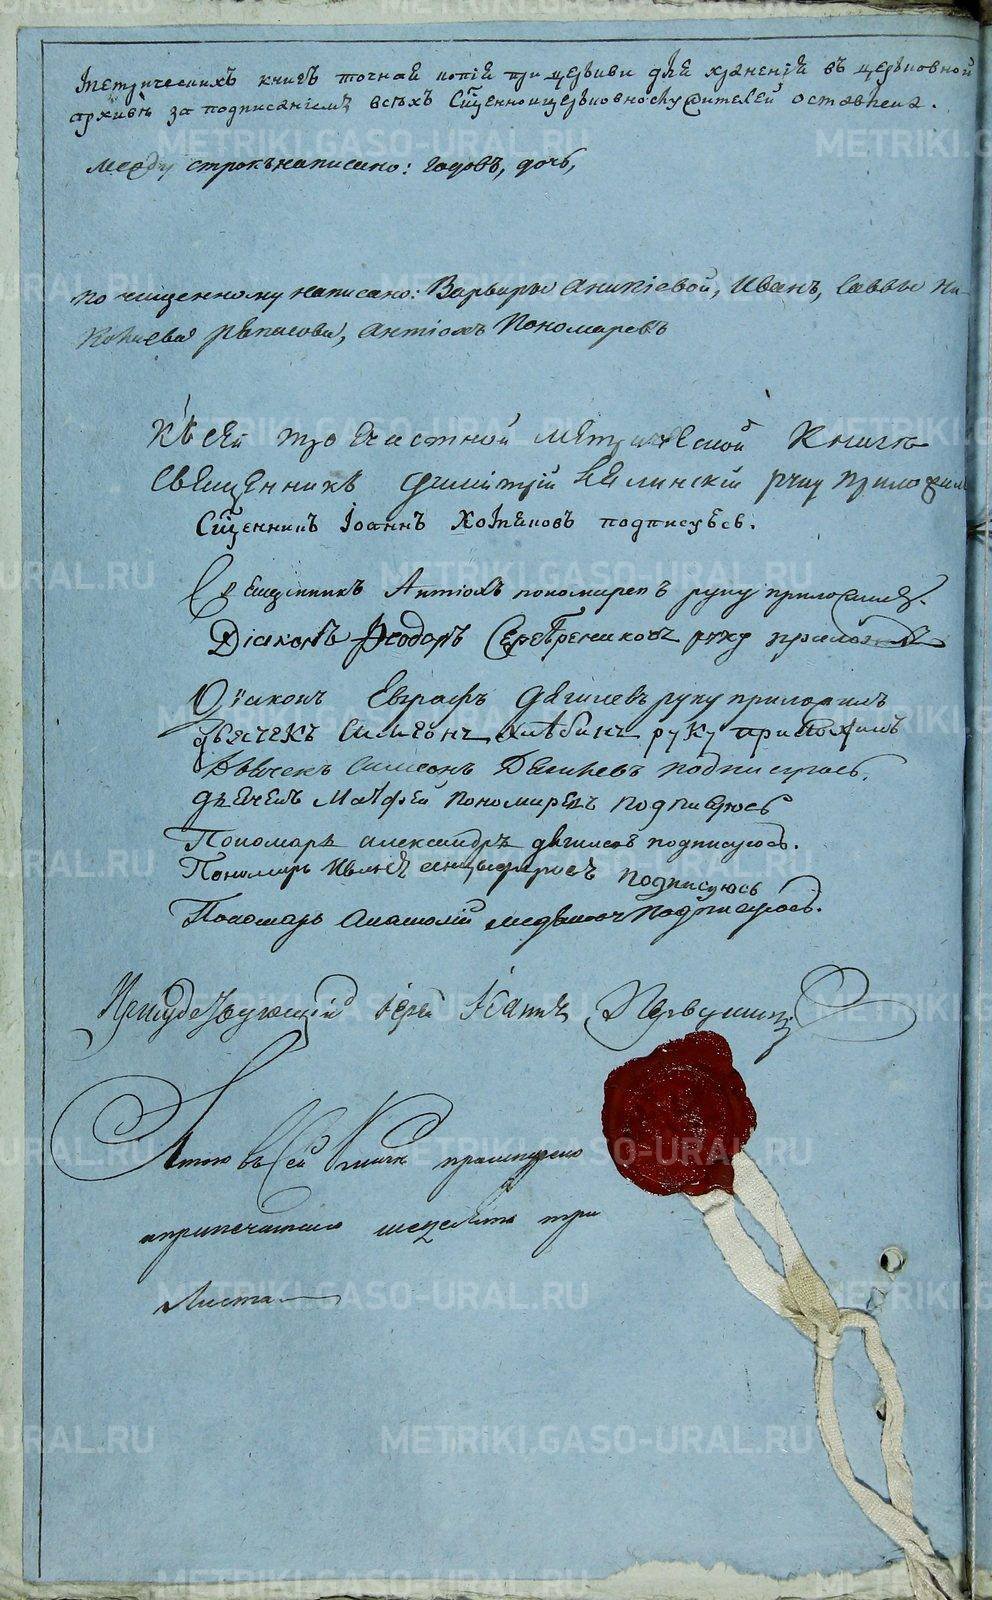 Метрическихъ книгъ точная копїя при церькви для храненїя въ церьковной
архивѣ за подписанїемъ всѣхъ Сщенноицерьковнослужителей оставлена.
между строкъ написано: годовъ, дочь,
по чищенному написано: Варвары Анипїевой, Иванъ, Саввы
Рѣпасова, Антїохъ Пономаревъ
Къ сей троечастной метрической книги
священникъ Димїтрїй руку приложилъ
Сщенникъ Іоаннъ Хотѣновъ подписуюсь.
Священникъ Антїохъ пономаревъ руку приложилъ.
Дїаконъ Феодоръ Серебрениковъ руку приложилъ
Дїаконъ Евграфъ Дягилевъ руку приложилъ
Дьячекъ Симеонъ Хлѣбинъ руку приложилъ
Дьячекъ Симеонъ Дягилевъ подписуюсь.
Дьячекъ Матфей Пономаревъ подписуюсь
Пономарь александръ дягилевъ подписуюсь.
Пономарь подписуюсь
Пономарь Анатолїй подписуюсь.
їерей Їоаннъ Первушинъ
Итого въ сей книге прошнурено
ипропечатано шездесятъ три
Листа
METRIKI.GASO-URAL.RU